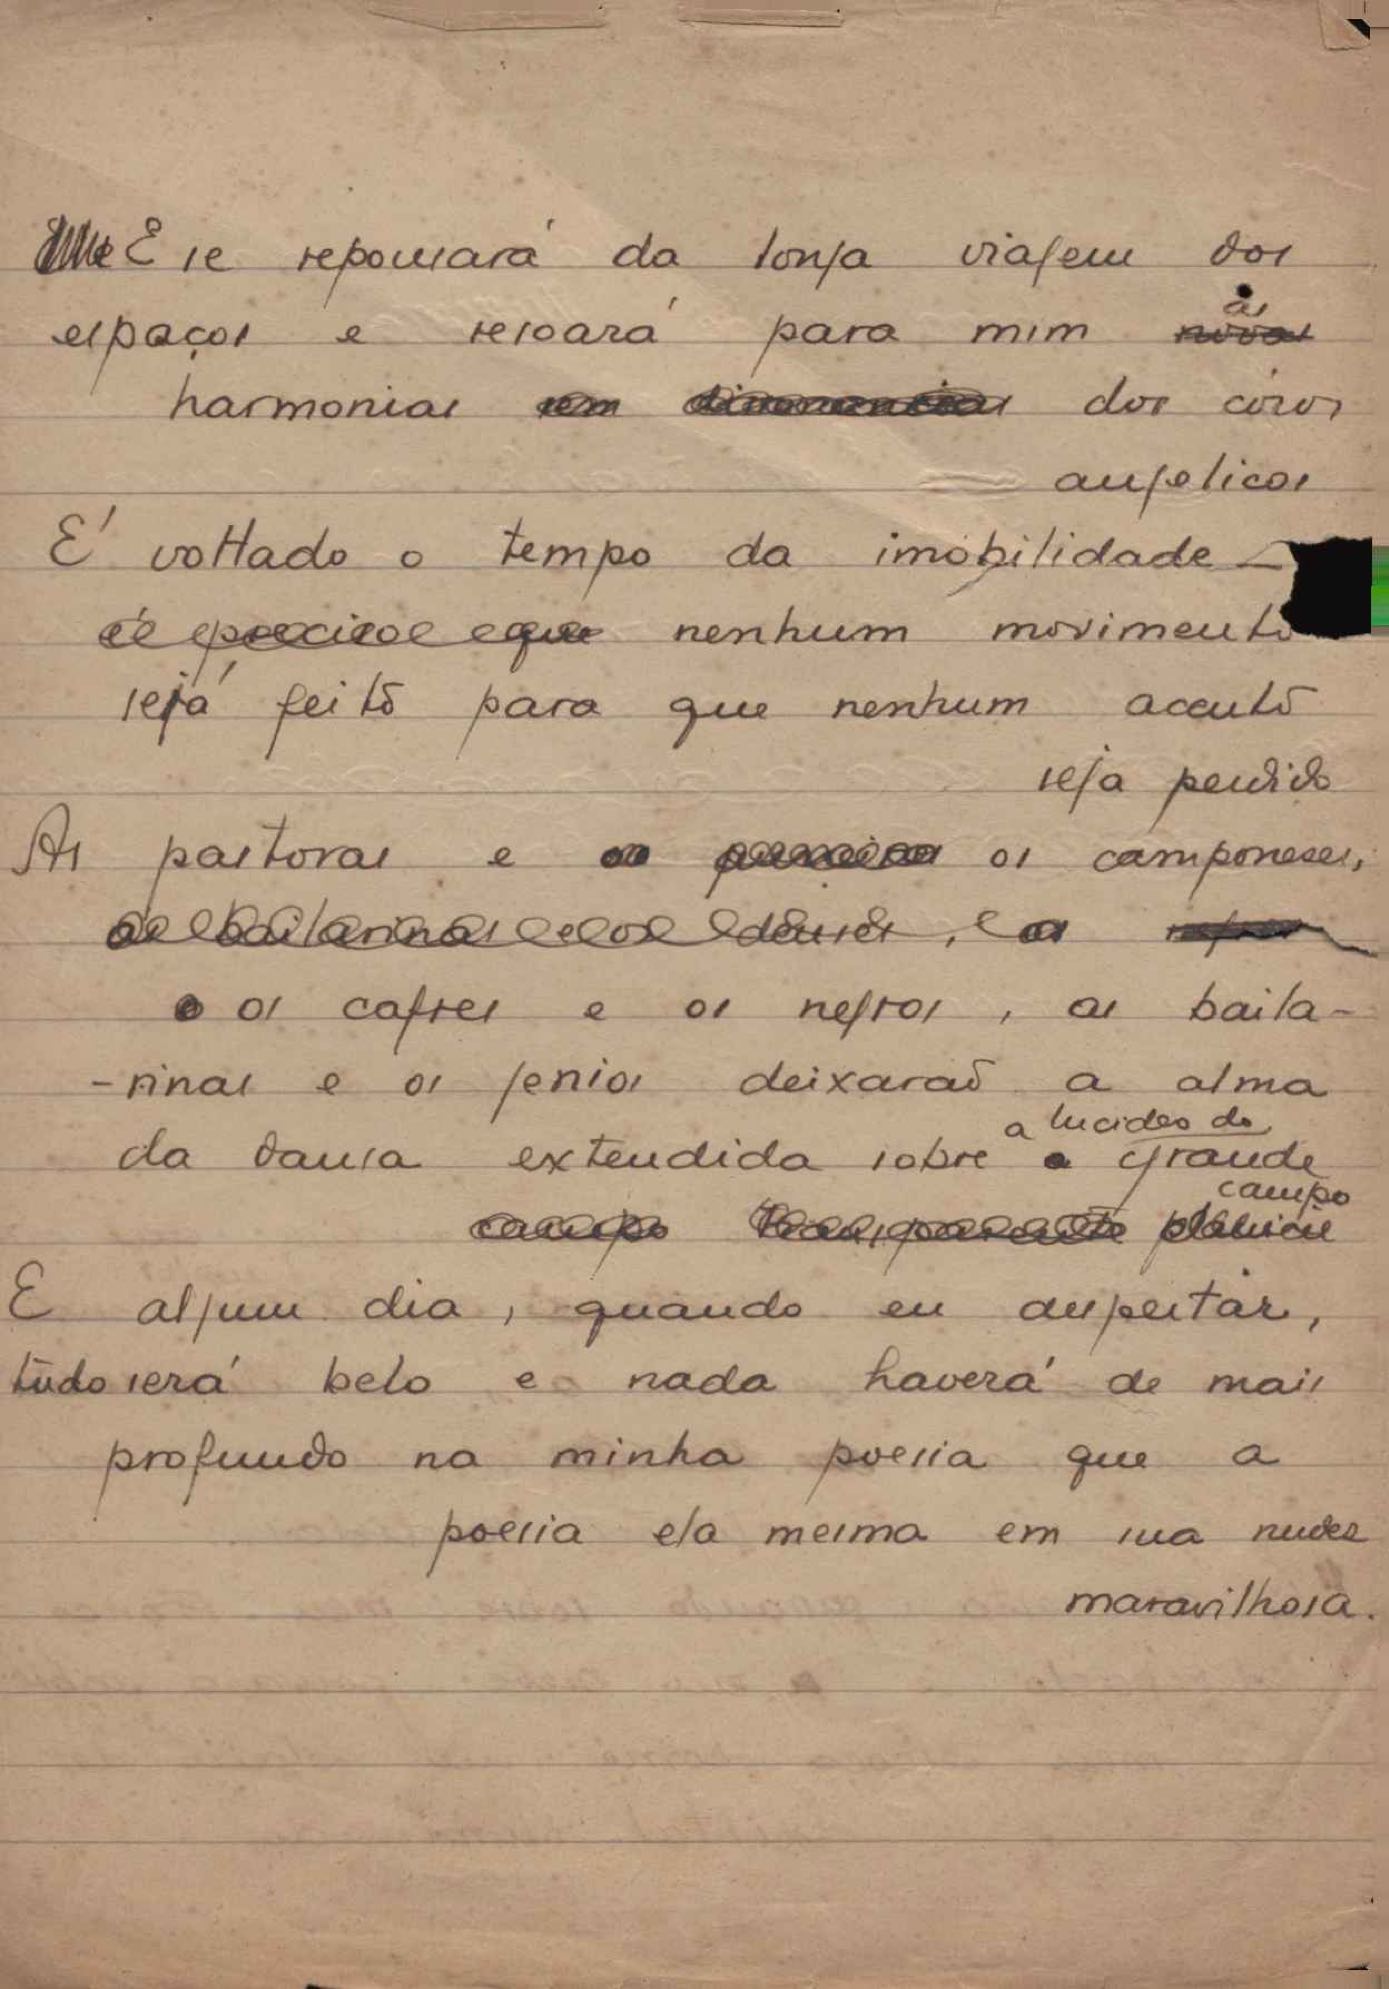 E se repousará da longa viagem dos
as
espaços e resoará para mim novas
harmonias sem dissonancias dos córos
angelicos
É voltado o tempo da imobilidade —
é preciso que nenhum movimento
seja feito para que nenhum acento
seja perdido
As pastoras e os camponeses,
as bailarinas e os deuses, e os
e os cafres e os negros, as baila-
-rinas e os genios deixarão a alma
a lucidez do
da dansa extendida sobre a grande
campo
campo transparente planicie
E algum dia, quando eu despertar,
tudo será belo e nada haverá de mais
profundo na minha poesia que a
poesia ela mesma em sua nudez
maravilhosa.